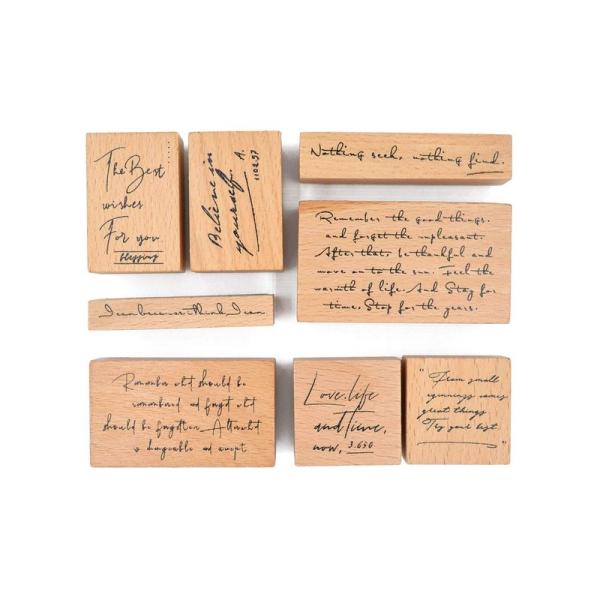 The Best
wishes
For you
blessing
Believe in
yourself. A.
110297
Nothing seek, nothing find.
Remember the good things.
and forget the unpleasant.
After that, be thankful and
move on to the sun. Feel the
warmth of life. And Stay for
time. Stop for the years.
I can because i think I can
Remember what should be
remembered and forget what
should be forgotten. Alter what
is changeable and accept
Love.life
and time,
now, 3.650
"From small
great things
Try your best"